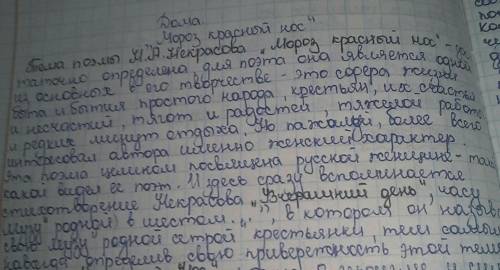 Дома
"Мороз красный нос"
Тема поэмы Н.А. Некрасова "Мороз красный нос" - дос
таточно определена, для поэта она является одной
из основных в его творчестве - это сфера жизни
быта и бытия простого народа, крестьян, их счастья
и несчастий, тягот и радостей, тяжелой работы
и редких минут отдыха. Но пожалуй, более всего
интересовал автора именно женский характер.
Эта поэма целиком посвящена русской женщине - так
какой видел ее поэт. И здесь сразу вспоминается
стихотворение Некрасова "Вчерашний день, часу
в шестом...", в котором он назыв
свою музу родной сестрой крестьянки тем самым
навсегда определив свою приверженность этой теме